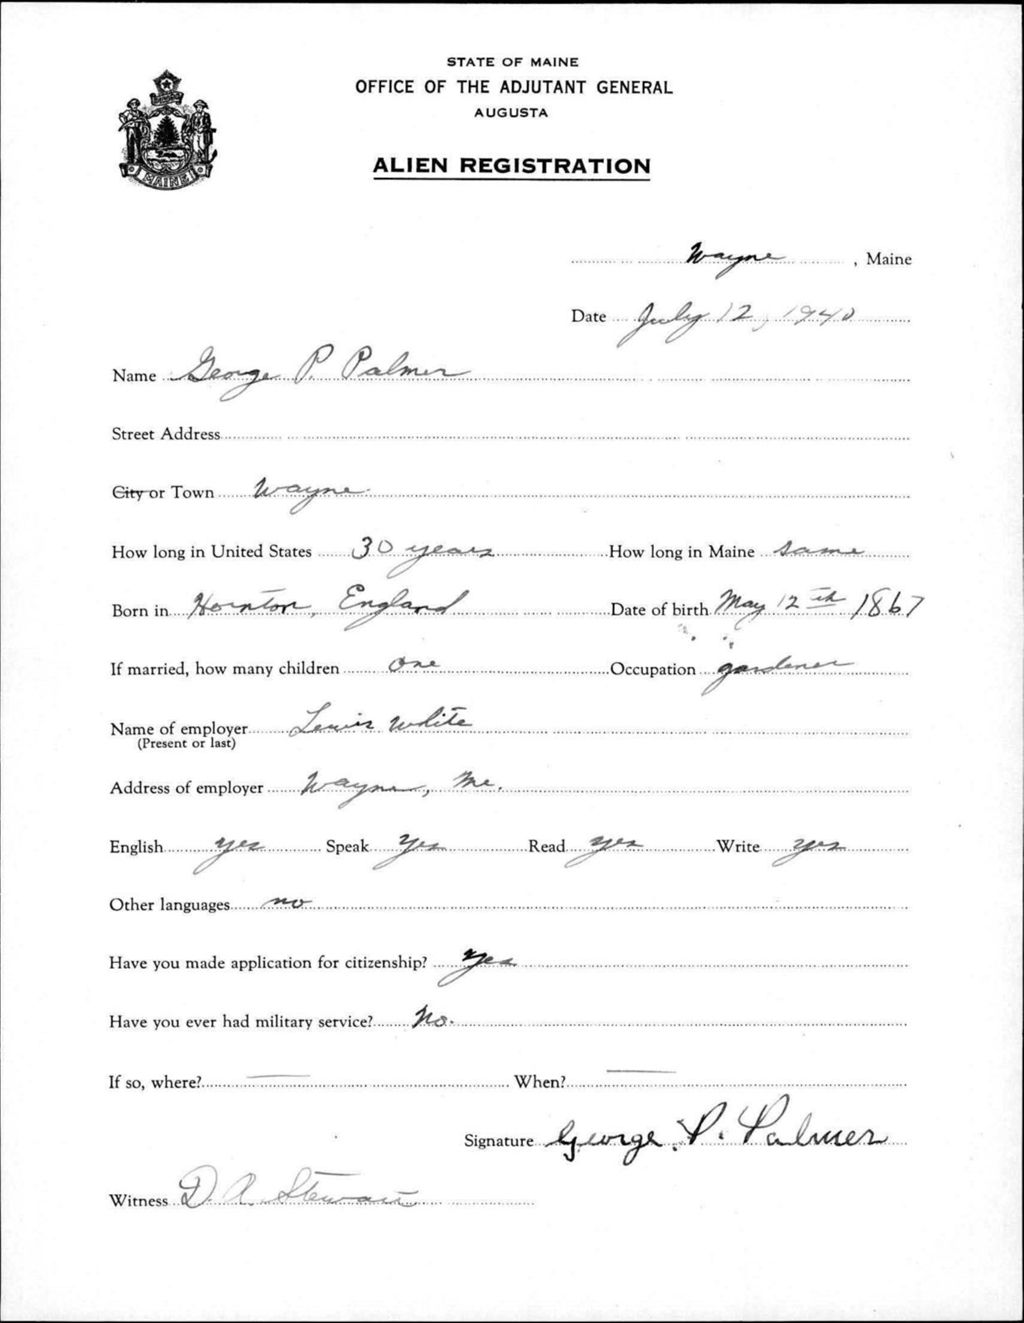 STATE OF MAINE
OFFICE OF THE ADJUTANT GENERAL
AUGUSTA
MAINE
ALIEN REGISTRATION
Wayne, Maine
Date July 12, 1940
Name George P. Palmer
Street Address
City or Town Wayne
How long in United States 30 years How long in Maine same
Born in Hornton, England Date of birth May 12th 1867
If married, how many children One Occupation gardener
Name of employer Lewis White
(Present or last)
Address of employer Wayne, Me.
English yes Speak Yes Read yes Write yes
Other languages no
Have you made application for citizenship? Yes
Have you ever had military service? No.
If so, where? — When? —
Signature George. P. Palmer
Witness D. A. Stewart